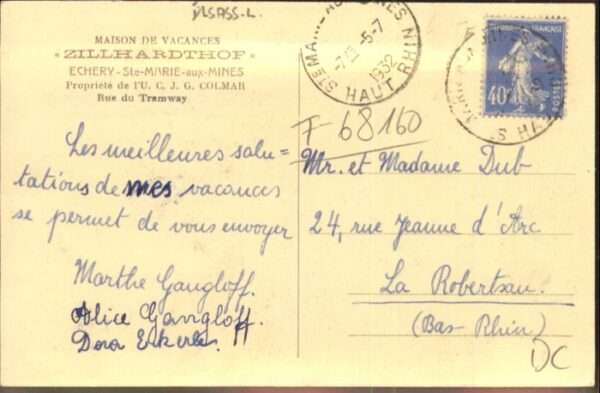 MAISON DE VACANCES
ZILLHARDTHOF
ECHERY - Ste-MARIE-aux-MINES
Propriété de l'U. C. J. G. COLMAR
Rue du Tramway
Les meilleures salu=
tations de mes vacances
se permet de vous envoyer
Marthe Gangloff.
Alice Gangloff.
Dora Eckerle.
5-7
1932
HAUT RHIN
40c
POSTES
F 68160
Mr. et Madame Dub
24, rue Jeanne d'Arc
La Robertsau.
(Bas-Rhin)
DC